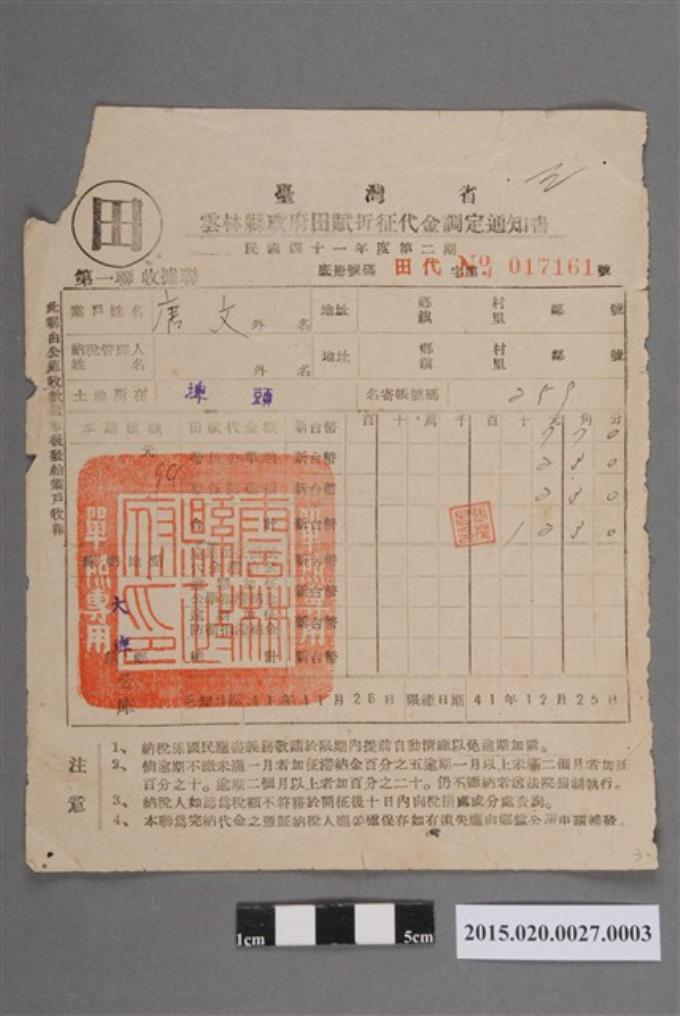 臺灣省
雲林縣政府田賦折征代金調定通知書
民國四十一年度第二期
田
第一聯 收據聯
底册號碼 田代 字第 No 017161 號
業戶姓名 唐文 外 名 地址 鄉鎮 村里 鄰 號
納稅管理人姓名 外 名 地址 鄉鎮 村里 鄰 號
土地所在 埤頭 名寄帳號碼 259
本期賦額 田賦代金額 新台幣 百 十 萬 千 百 十 元 角 分
7 7 0
元 新台幣 2 3 0
新台幣 2 3 0
計 新台幣 1 2 3 0
新台幣
新台幣
新台幣
計 新台幣
單照專用
單照專用
大埤
公庫
41年11月26日 限繳日期 41年12月25日
注意
1、納稅係國民應盡義務敬請於限期內提前自動清繳以免逾期加罰。
2、倘逾期不繳未滿一月者加征滯納金百分之五逾期一月以上未滿二個月者加征
百分之十。逾期二個月以上者加百分之二十。仍不繳納者送法院强制執行。
3、納稅人如認爲稅額不符務於開征後十日內向稅捐處或分處查詢。
4、本聯爲完納代金之憑証納稅人應妥爲保存如有遺失應由鄉鎮公所申請補發。
1cm 5cm
2015.020.0027.0003